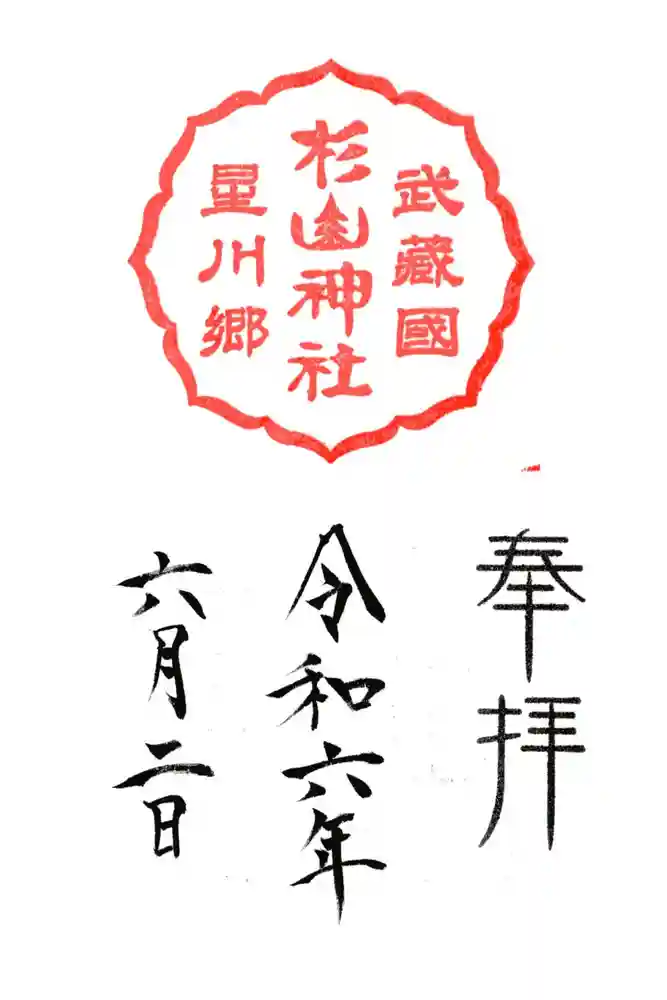 武藏國
杉山神社
星川郷
奉拝
令和六年
六月二日